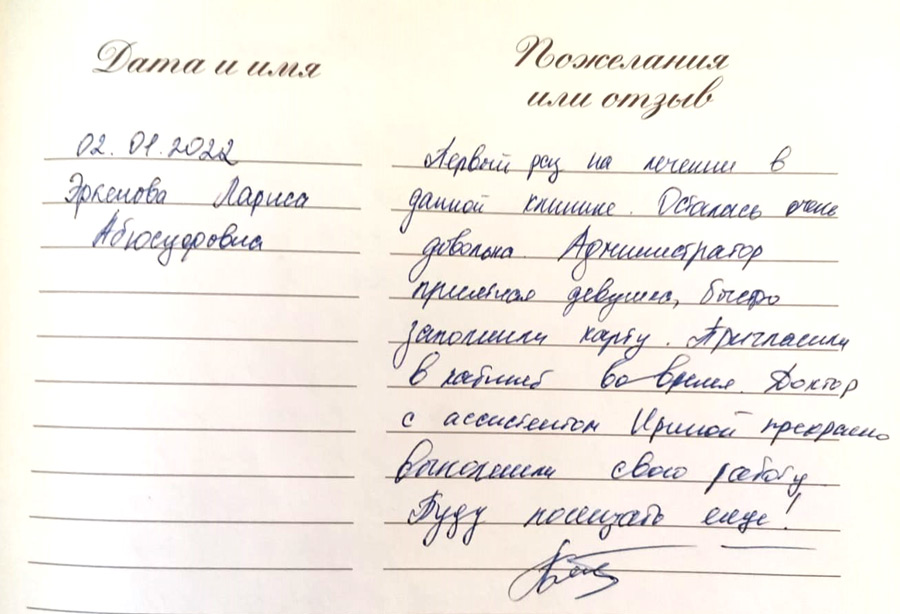 Дата и имя
02.01.2022
Эркенова Лариса
Абюсуфовна
Пожелания
или отзыв
Первый раз на лечении в
данной клинике. Осталась очень
довольна. Администратор
приятная девушка, быстро
заполнили карту. Пригласили
в кабинет во время. Доктор
с ассистентом Ириной прекрасно
выполнили свою работу.
Буду посещать еще!